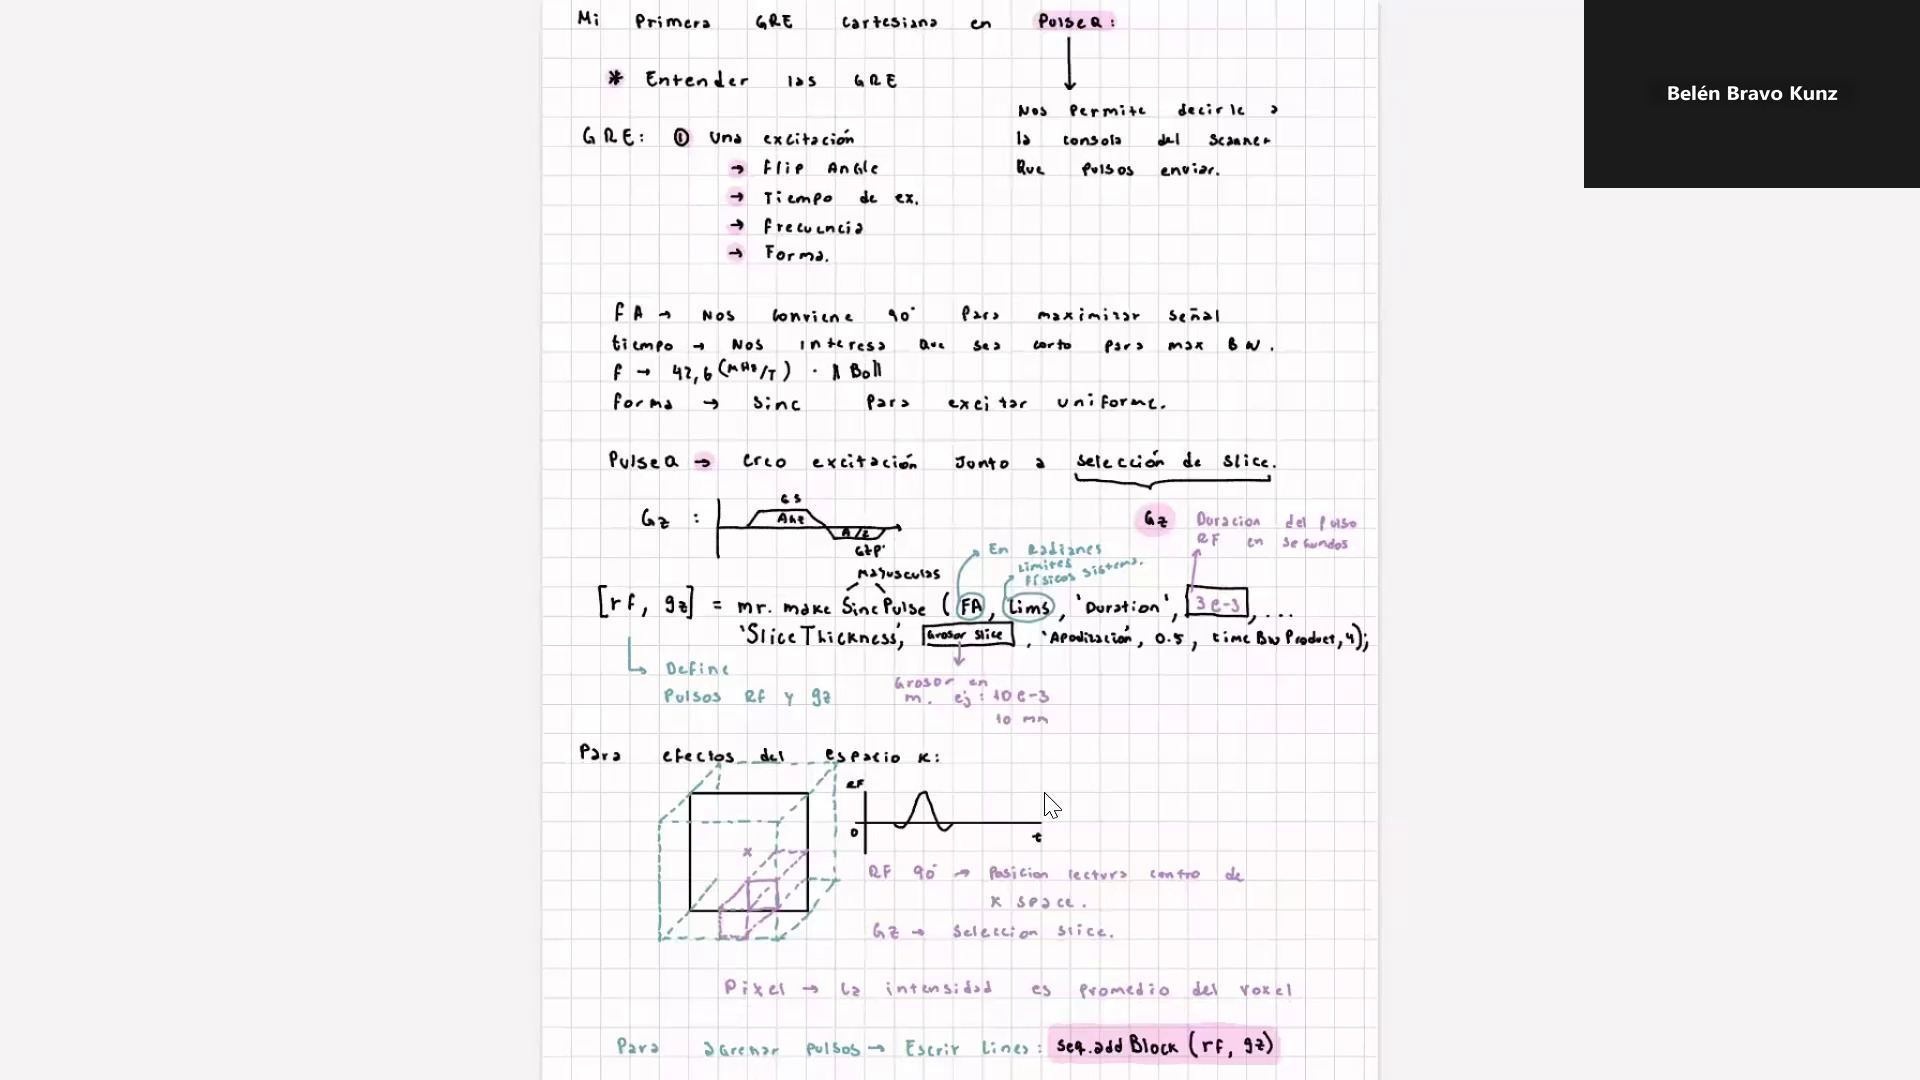 Mi Primera GRE cartesiana en PulseQ:
Belén Bravo Kunz
* Entender las GRE
Nos Permite decirle a
la consola del scanner
Que Pulsos enviar.
GRE: ① Una excitación
→ Flip Angle
→ Tiempo de ex.
→ Frecuencia
→ Forma.
FA → Nos conviene 90° Para maximizar señal
tiempo → Nos interesa que sea corto para max BW.
F → 42,6 (MHz/T) · ||Bo||
Forma → Sinc Para excitar uniforme.
PulseQ → creo excitación Junto a selección de slice.
Gz :
GS
A/2
Gz
Duracion del Pulso
RF en segundos
En Radianes
Limites
Físicos sistema.
Mayusculas
[rf, gz] = mr. make SincPulse (FA, Lims, 'Duration', 3e-3, ...
'SliceThickness', Grosor slice, 'Apodización', 0.5, timeBwProduct, 4);
Define
Pulsos RF y gz
Grosor en
m. ej: 10e-3
10 mm
Para efectos del espacio K:
RF
0
t
x
RF 90° → Posicion lectura centro de
K space.
Gz → Seleccion slice.
Pixel → La intensidad es Promedio del voxel
Para agregar pulsos → Escrir Linea: seq.addBlock (rf, gz)